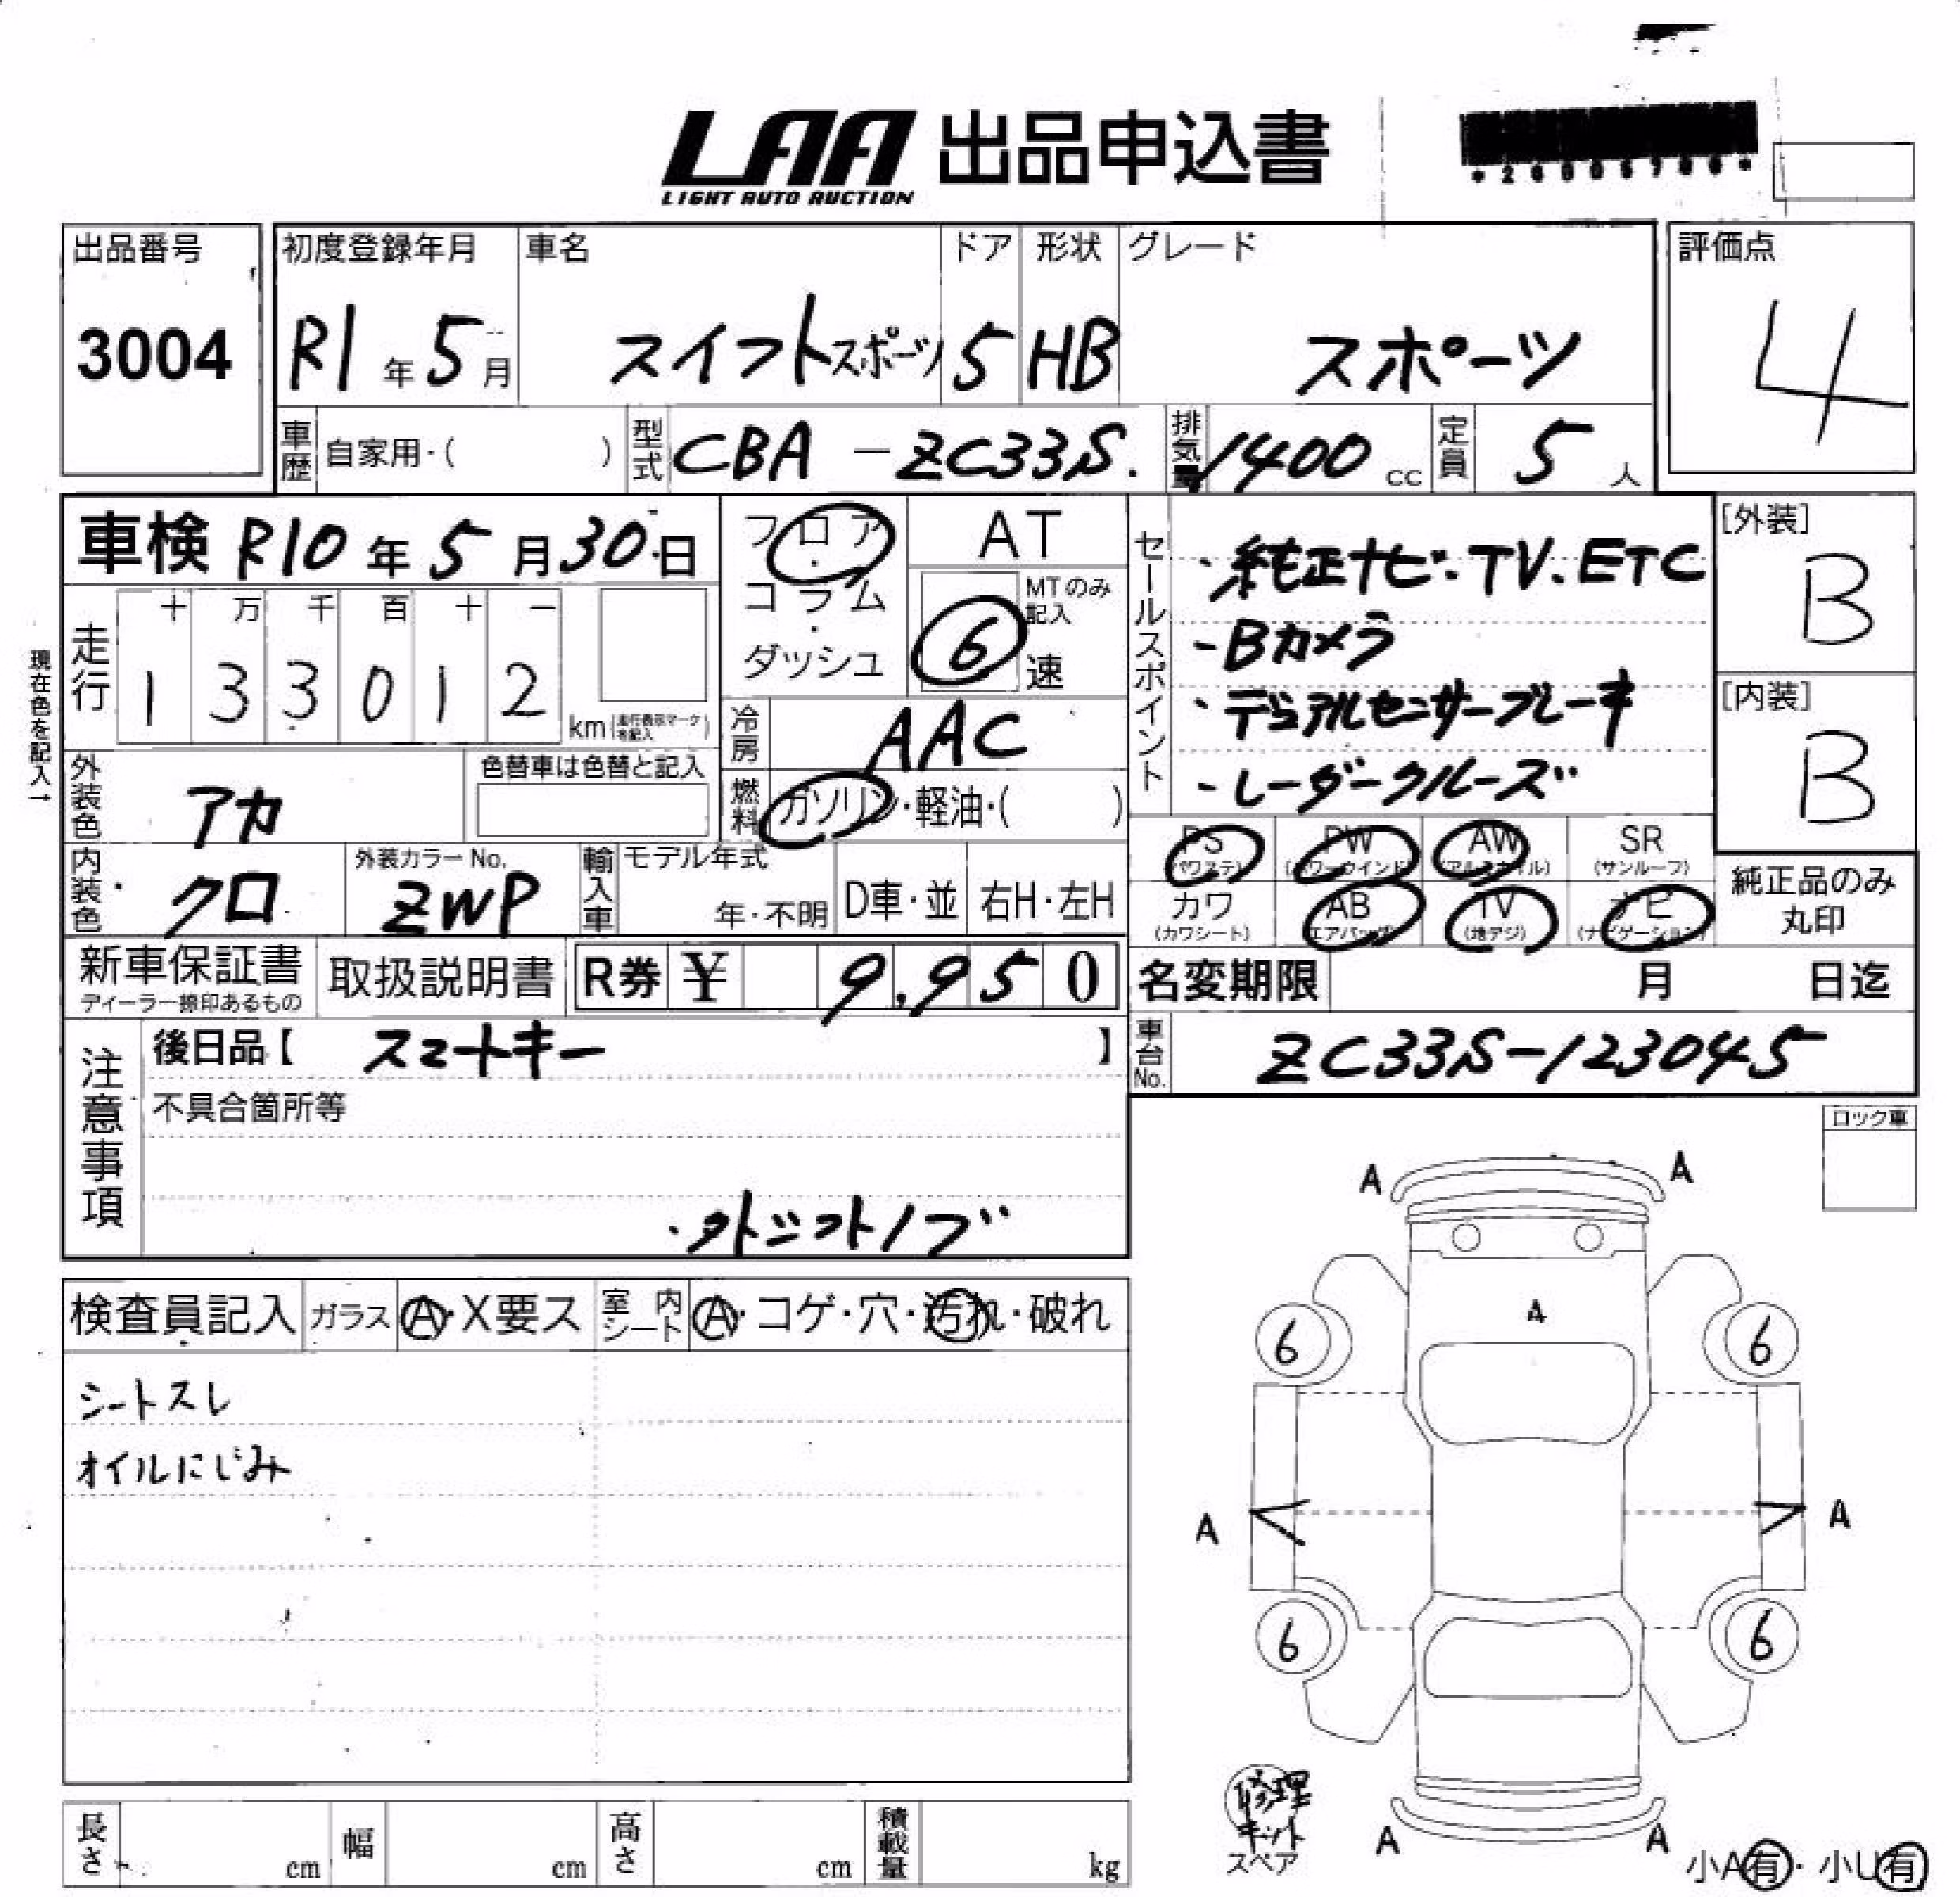 LAA 出品申込書
LIGHT AUTO AUCTION
出品番号 初度登録年月 車名 ドア 形状 グレード 評価点
3004 R1年5月 スイフトスポーツ 5 HB スポーツ 4
車歴 自家用・( ) 型式 CBA-ZC33S. 排気量 1400cc 定員 5人
車検 R10年5月30日 フロア・コラム・ダッシュ AT
MTのみ記入 6速
セールスポイント
・純正ナビ・TV.ETC
・Bカメラ
・デュアルセンサーブレーキ
・レーダークルーズ
[外装]
B
[内装]
B
現在色を記入→
走行 十 万 千 百 十 一
1 3 3 0 1 2 km(走行表示マークを記入)
冷房 AAC
外装色 アカ 色替車は色替と記入
燃料 ガソリン・軽油・( )
内装色 クロ 外装カラーNo. ZWP 輸入車 モデル年式 年・不明 D車・並 右H・左H
PS (パワステ) PW (パワーウインド) AW (アルミホイル) SR (サンルーフ)
カワ (カワシート) AB (エアバッグ) TV (地デジ) ナビ (ナビゲーション)
純正品のみ丸印
新車保証書 取扱説明書 R券 ¥ 9,950
ディーラー捺印あるもの
名変期限 月 日迄
注意事項
後日品【 スマートキー 】
車台No. ZC33S-123045
不具合箇所等
ロック車
検査員記入 ガラス A・X要ス 室内シート A・コゲ・穴・汚れ・破れ
シートスレ
オイルにじみ
A A
A
6 6
A A
6 6
A A
修理
キット
スペア
小A有・小U有
長さ cm 幅 cm 高さ cm 積載量 kg